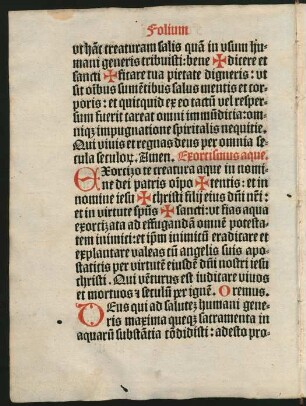 Folium
ut hāc creaturam salis quā in usum hu-
mani generis tribuisti: bene ✠ dicere et
sancti ✠ ficare tua pietate digneris: ut
sit oībus sumētibus salus mentis et cor-
poris: et quicquid ex eo tactū vel resper-
sum fuerit careat omni immūdicia: om-
niqꝫ impugnatione spiritalis nequitie.
Qui vivis et regnas deus per omnia se-
cula seculoꝝ. Amen. Exorcismus aque.
EXorcizo te creatura aque in nomi-
ne dei patris oīpo ✠ tentis: et in
nomine iesu ✠ christi filij eius dn̄i nr̄i:
et in virtute spūs ✠ sancti: ut fias aqua
exorcizata ad effugandā omnē potesta-
tem inimici: et ip̄m inimicū eradicare et
explantare valeas cū angelis suis apo-
staticis per virtutē eiusdē dn̄i nostri iesu
christi. Qui vēturus est iudicare vivos
et mortuos ⁊ seculū per ignē. Oremus.
DEus qui ad salutē humani gene-
ris maxima queqꝫ sacramenta in
aquarū substātia cōdidisti: adesto pro-